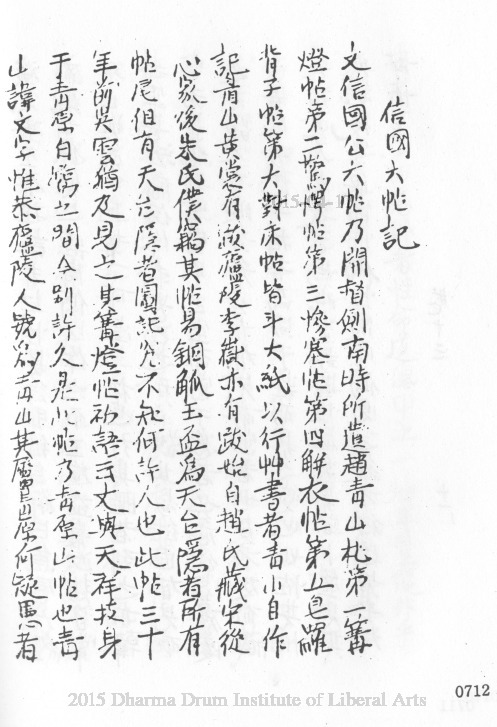 信國大帖記
文信國公六帖乃開督劍南時所遺趙青山札第一篝
燈帖第二驚悸帖第三慘塞帖第四解衣帖第五皂羅
背子帖第六對床帖皆斗大紙以行艸書者青山自作
記青山黃裳有跋廬陵李嶽亦有跋始自趙氏藏宋從
心家後朱氏僕竊其帖易銅觚玉盃為天台隱者所有
帖尾但有天台隱者圖記究不知何許人也此帖三十
年前吳雲猶及見之其篝燈帖初語云丈與天祥技身
于青原白鷺之間今別許久是小帖乃青原山帖也青
山諱文字惟恭廬陵人號為青山其屬青原何疑愚者
0712
2015 Dharma Drum Institute of Liberal Arts